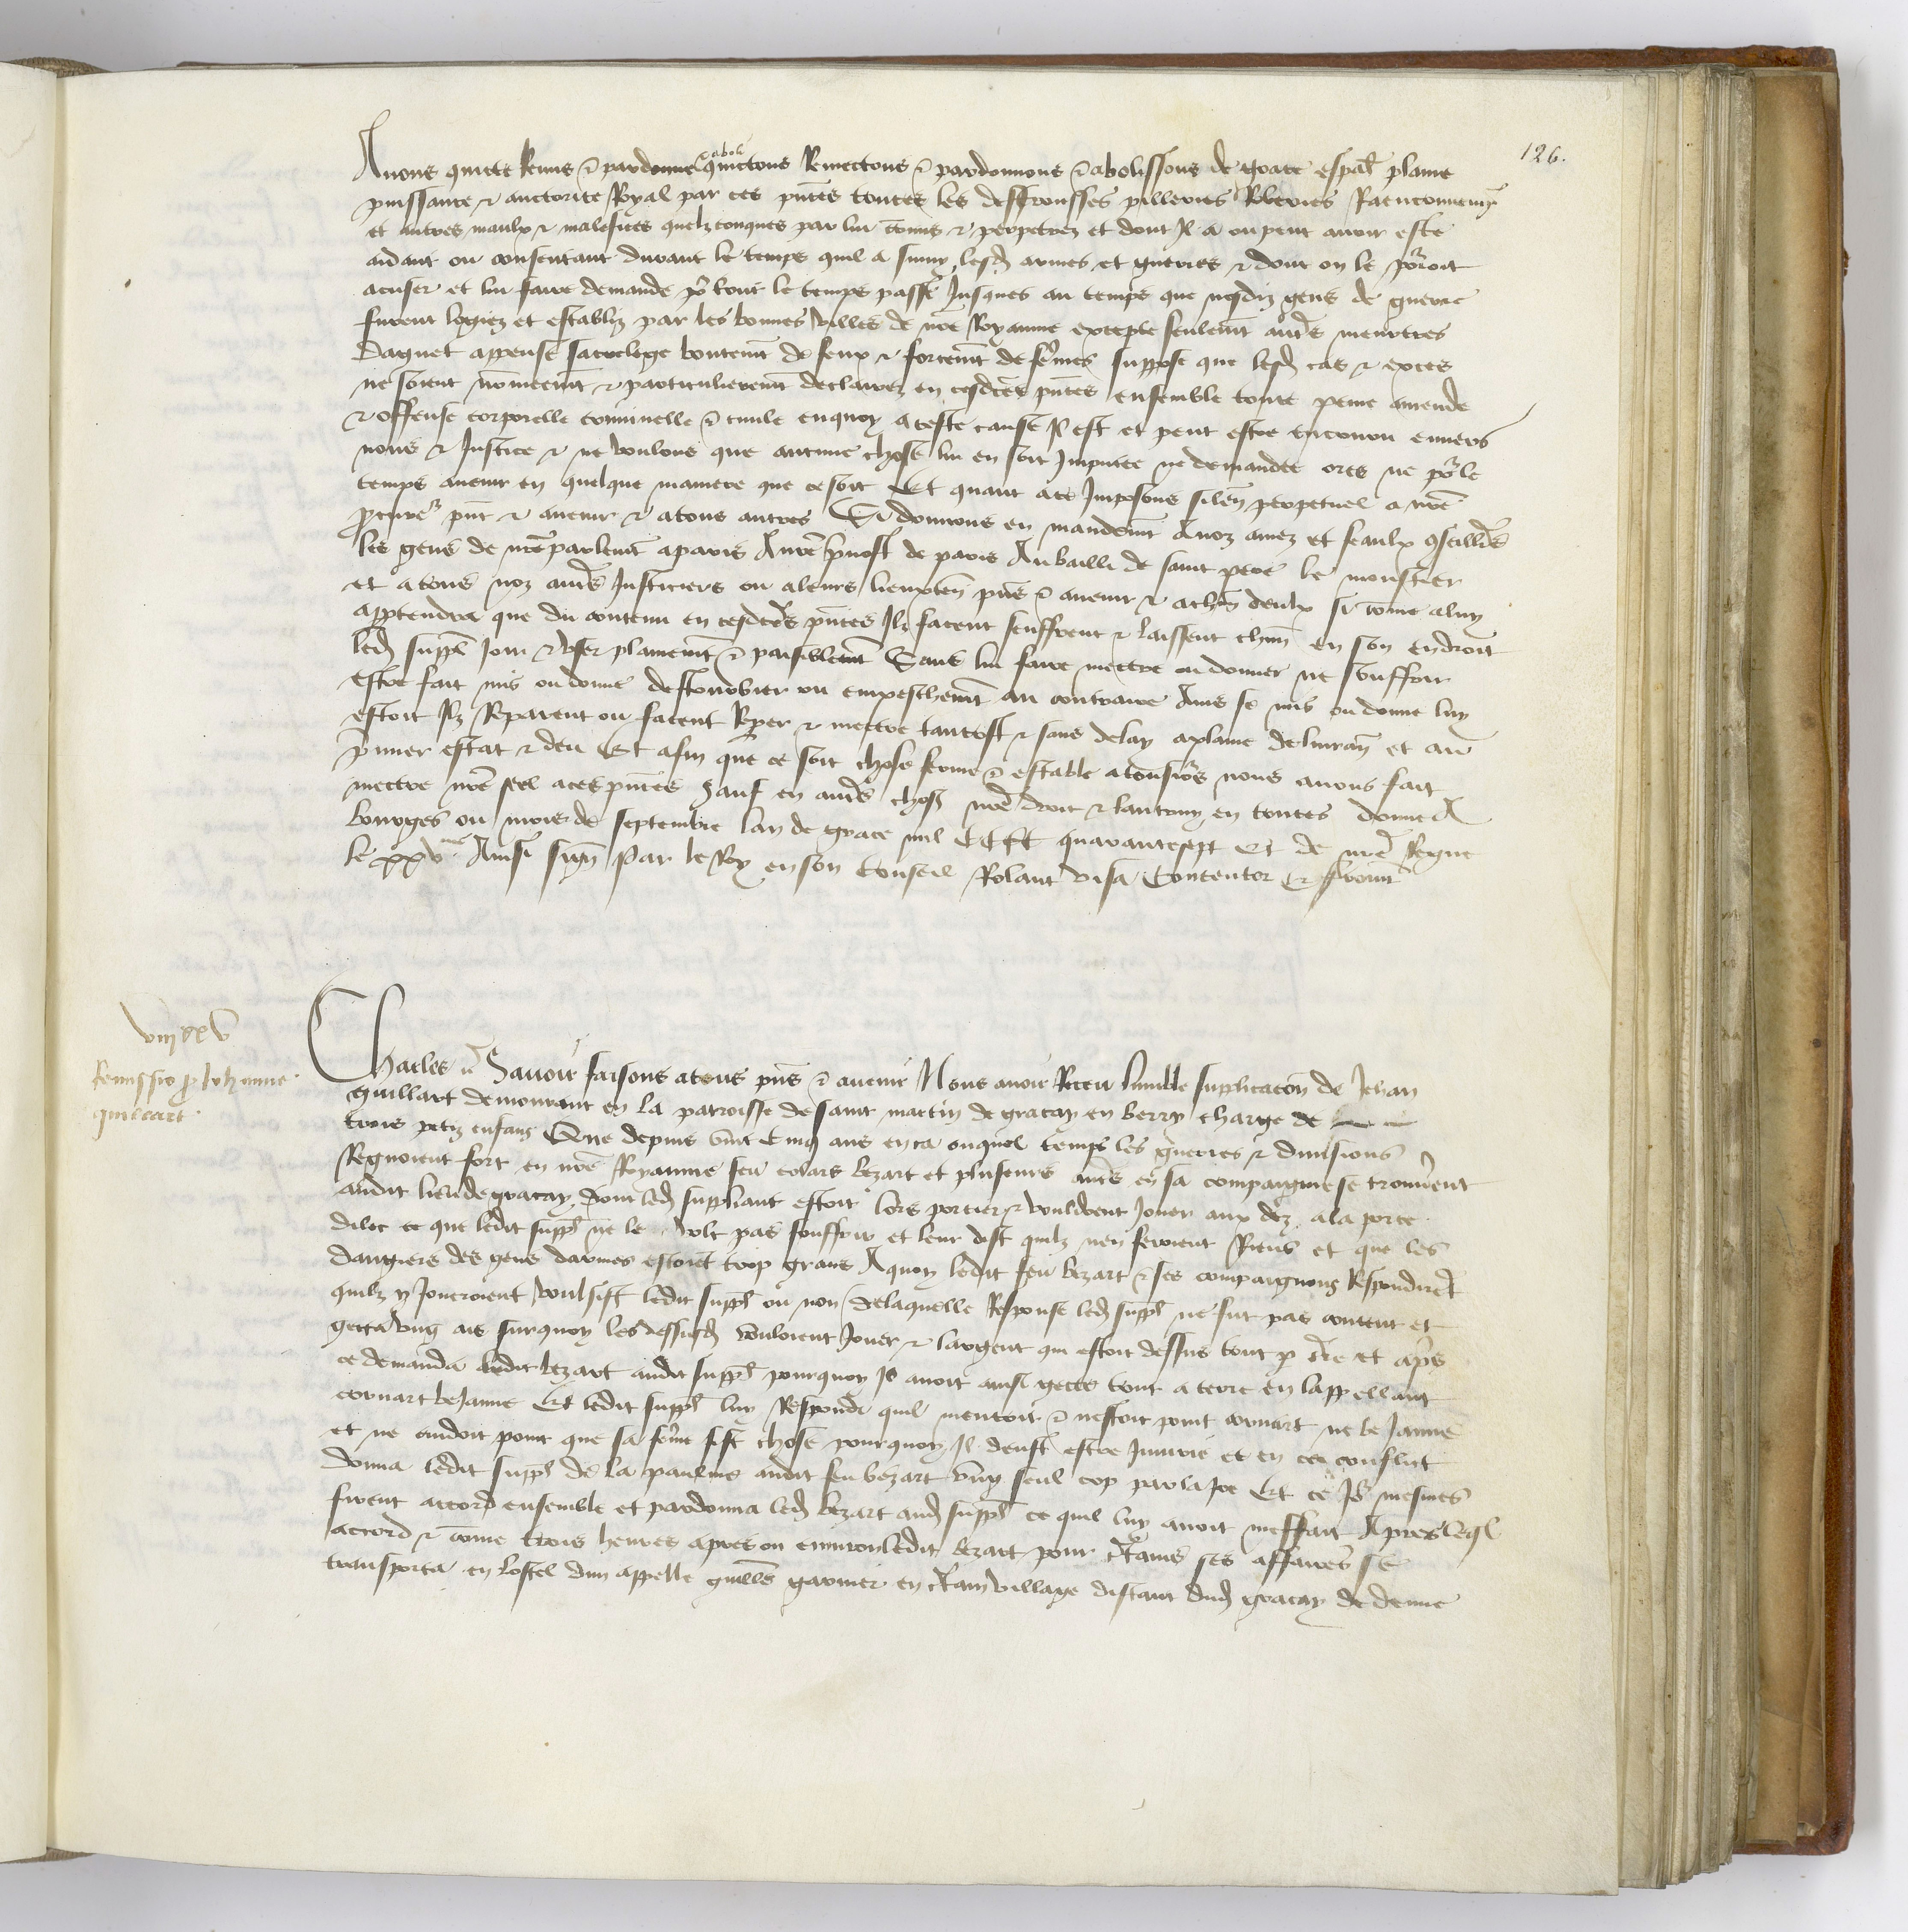 126.
Avons quicte Remis & pardonne & aboli quictons Remectons & pardonnons & abolissons de grace espāl plaine
puissance & auctorite Royal par ces pñtes toutes les destrousses pilleries Roberies Raenconnemēs
et autres maulx & malefices quelzconques par lui cōmis & perpetrez et dont Il a ou peut avoir este
aidant ou consentant durant le temps quil a suivy lesd armes et guerres & dont on le porroit
acuser et lui faire demande por tout le temps passe Jusques au temps que nosdiz gens de guerre
furent logiez et establiz par les bonnes villes de nrē Royaume excepte seulemt autrs meurtres
Daguet appense sacrelege boutemt de feux & forcemt de femes suppose que lesd cas & exces
ne soient nōmeemt & particulieremt declairez en cesdctes pñtes ensemble toute peine amende
& offense corporelle criminelle & civile enquoy aceste cause Il est et peut estre encouru envers
nous & Justice & ne voulons que aucune chose lui en soit Imputee ne demandee ores ne por le
temps avenir en quelque maniere que ce soit Et quant ace Imposons silen perpetuel a nrē
procureur pñt & avenir & atous autres Si donnons en mandemt Anoz amez et feaulx conseillrs
les gens de nrē parlemt aparis Au prevost de paris Au bailli de saint pere le monstier
et atous noz autrs Justiciers ou aleurs lieuxten pñs & avenir & achun deulx si cōme aluy
appartendra que du contenu en cesdctes pñtes Ilz facent seuffrent & laissent chun en son endroit
led suppl Joir & user plainemt & paisiblemt Sans lui faire mectre ou donner ne souffrir
estre fait mis ou donne destourbier ou empeschemt au contraire Ains se mis ou donne luy
estoit Ilz Reparent ou facent Reper & mectre tantost & sans delay aplaine delivran et au
primier estat & deu Et afin que ce soit chose ferme & estable atousjors nous avons fait
mectre nrē seel aces pñtes Sauf en autrs choses nrē droit & lautruy en toutes donne A
bourges ou mois de septembre lan de grace mil CCCC quarantesept Et de nrē Regne
le xxve Ainsi sign Par le Roy en son Conseil Rolant Visa Contentor E froment
viii xx v
Remissio pro Johanne
quillart
Charles &c Savoir faisons atous pñs & avenir Nous avoir Receu lumble suplicacōn de Jehan
quillart demourant en la parroisse de saint martin de gracay en berry charge de
trois petiz enfans Que depuis vint & cinq ans enca ouquel temps les guerres & divisions
Regnoient fort en nrē Royaume feu colars bezart et plusieurs autrs en sa compaignie se trouverent
audit lieu de gracay dont led suppliant estoit lors portier & vouldrent Jouer aux dez ala porte
dilec ce que ledit suppl ne le volt pas souffrir et leur dist quilz nen feroient Riens et que les
dangiers des gens darmes estoiēt trop grans Aquoy ledit feu bezart & ses compaignons Respondirēt
quilz y Joueroient voulsist ledit suppl ou non delaquelle Response led suppl ne fut pas content et
gecta ung ais surquoy les dessusd vouloient Jouer & largent qui estoit dessus tout p tre et apres
ce demanda ledit bezart audit suppl pourquoy Il avoit ainsi gecte tout a terre en lappellant
cornart beJanne Et ledit suppl luy Respondi quil mentoit & nestoit point cornart ne beJanne
et ne cuidoit point que sa feme fist chose pourquoy Il deust estre Iniurie et en ce conflict
donna ledit suppl de la paulme audit feu bezart ung seul cop par la Joe Et ce Jor mesmes
firent accord ensemble et pardonna led bezart aud suppl ce quil luy avoit meffait Apres leql
accord & cōme trois heures apres ou environ ledit bezart pour ctains ses affaires se
transporta en lostel dun appelle guillē garnier en ctain village distant dud gracay de demie